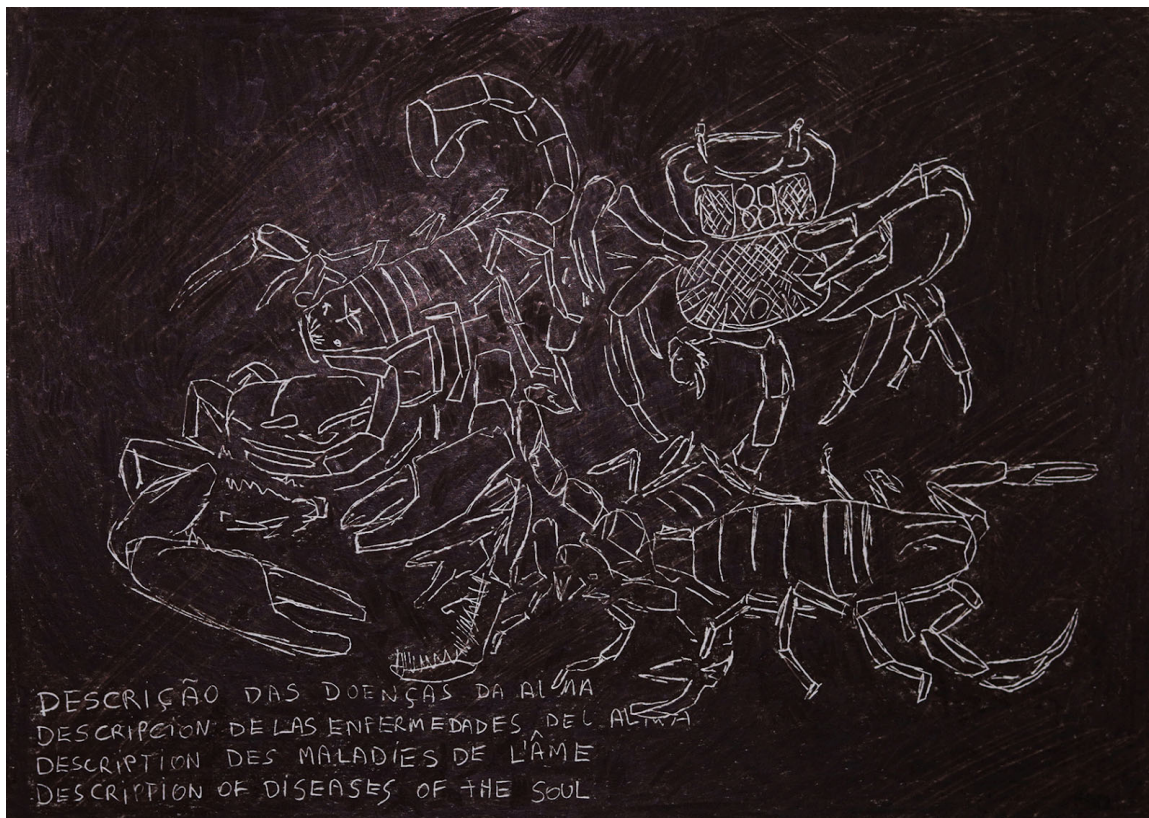 DESCRIÇÃO DAS DOENÇAS DA ALMA
DESCRIPCION DE LAS ENFERMEDADES DEL ALMA
DESCRIPTION DES MALADIES DE L'ÂME
DESCRIPTION OF DISEASES OF THE SOUL